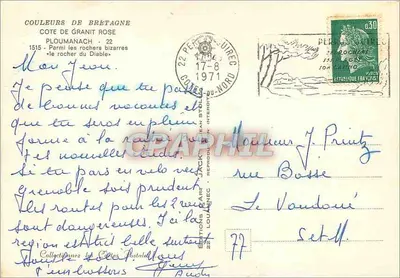 COULEURS DE BRETAGNE
COTE DE GRANIT ROSE
PLOUMANACH - 22
1515 - Parmi les rochers bizarres
«le rocher du Diable»
22 PERROS-GUIREC
17-8
1971
COTES-DU-NORD
0,30
REPUBLIQUE FRANÇAISE
Mon Jean.
Je pense que tu passes
de bonnes vacances et
que tu seras en pleine
forme à la rentrée pour
tes nouvelles études.
Si tu pars en vélo vers
Grenoble sois prudent
les routes pour les 2 roues
sont dangereuses. Ici la
région est très belle surtout
Nous
t'embrassons
Monsieur J. Printz
rue Basse
Le Vaudoué
77
S et M.
EDITIONS D'ART JACK
22 - LOUANNEC
CPAPHIL